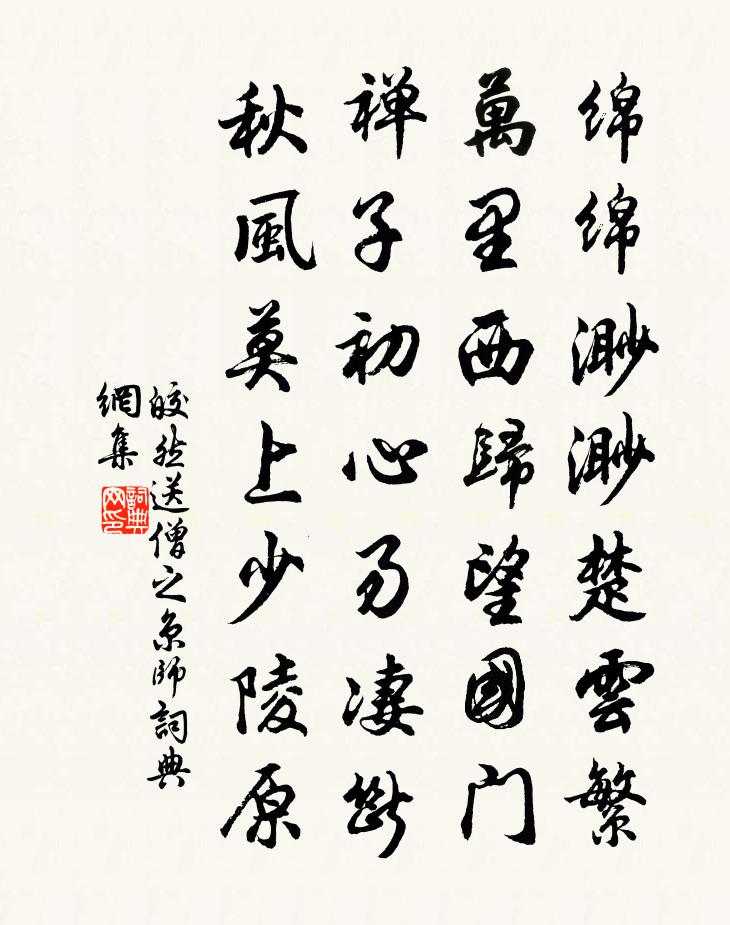 绵绵渺渺楚雲繁
萬里西歸望國门
禅子初心易凄断
秋風莫上少陵原
皎然送僧之京師詞典
網集
詞典網印